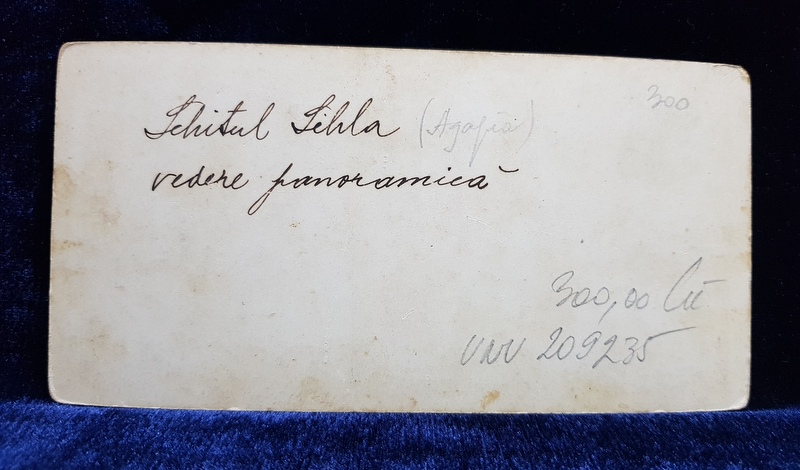 Schitul Sihla (Agapia) 300
vedere panoramică
300,00 Lei
209235